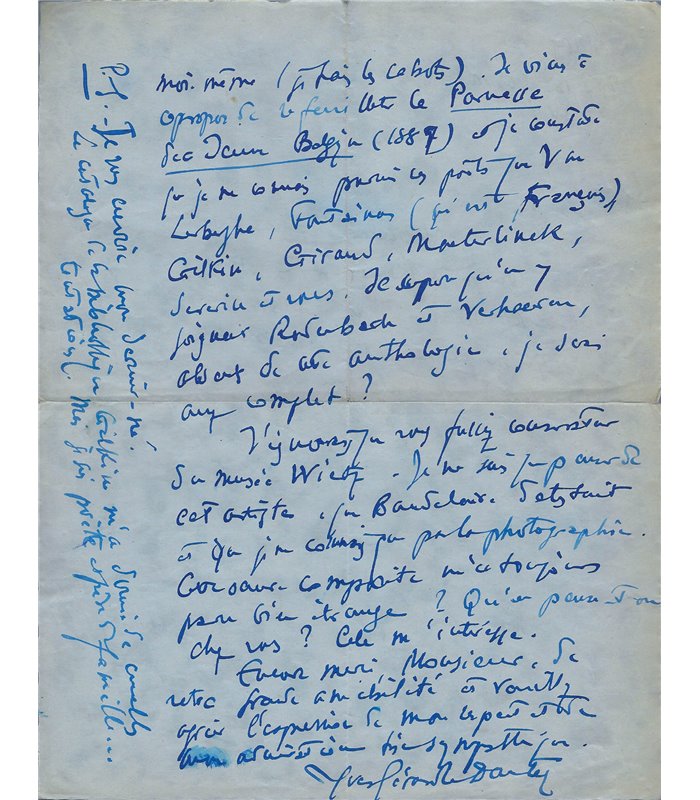 moi-même (je hais les cabots). Je viens à
propos de refeuilleter le Parnasse
de la Jeune Belgique (1887) et je constate
que je ne connais parmi ces poètes que Van
Lerberghe, Fontainas (qui est français),
Gilkin, Giraud, Maeterlinck,
Severin et vous. Je suppose qu'en y
joignant Rodenbach et Verhaeren,
absents de cette anthologie, je serai
assez complet ?
J'ignorais que vous fussiez conservateur
du musée Wiertz. Je ne sais que penser de
cet artiste, que Baudelaire détestait
et que je ne connais que par la photographie.
composite m'a toujours
paru bien étrange ? Qu'en pense-t-on
chez vous ? Cela m'intéresse.
Encore merci, Monsieur, de
votre grande amabilité et veuillez
agréer l'expression de mon respect et de
mon admiration bien sympathique.
Yves-Gérard Le Dantec
P.S. - Je vous envoie mon dernier-né.
Le catalogue de la bibliothèque Gilkin m'a donné de cruelles
tentations. Mais je suis poète et père de famille...